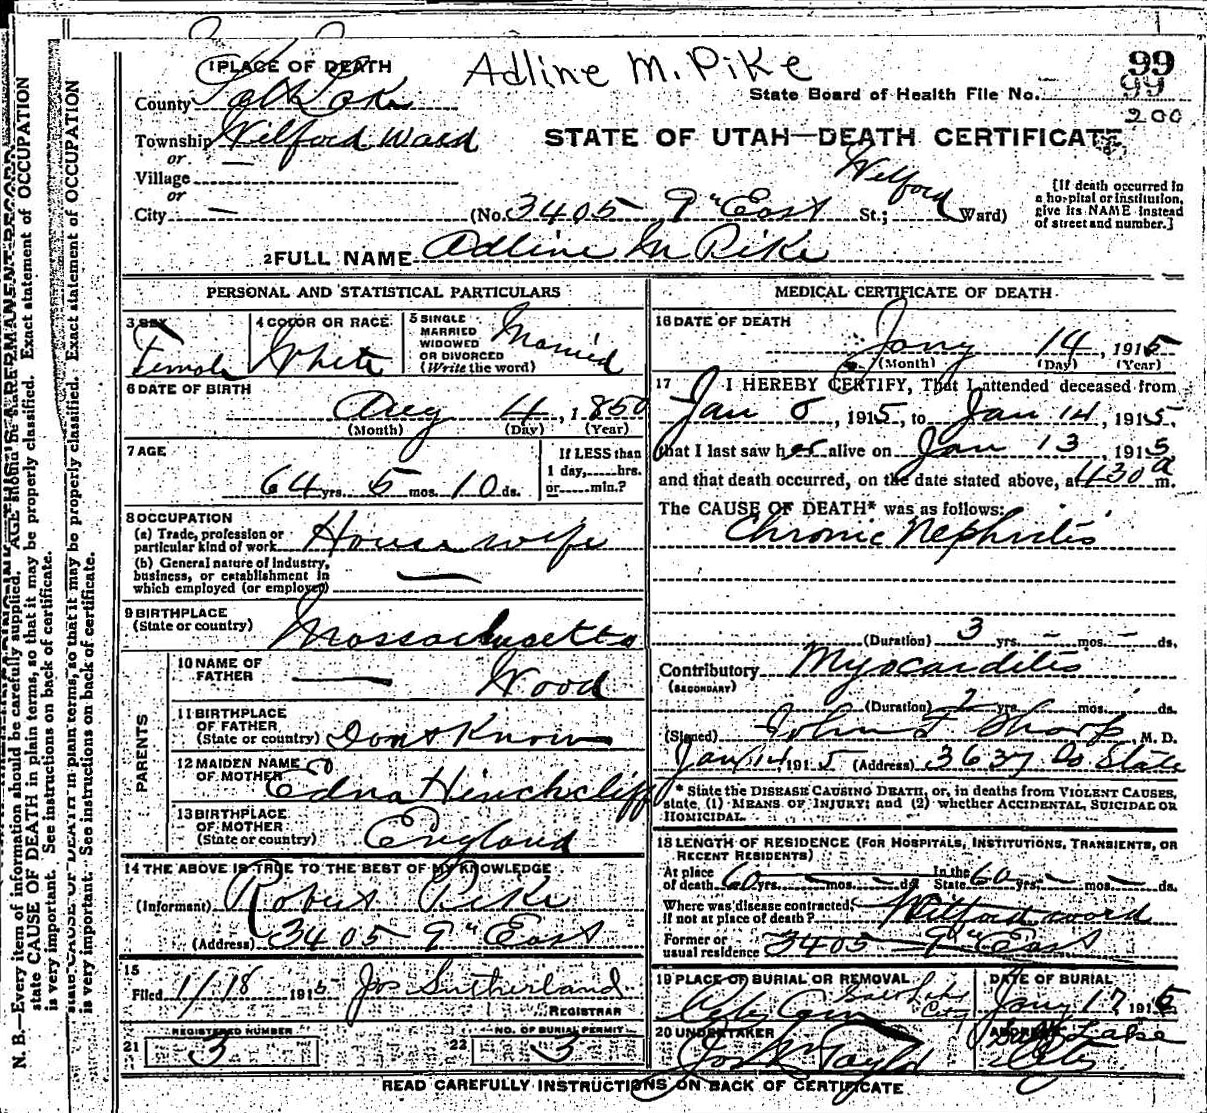 N. B.—Every item of information should be carefully supplied. AGE should be stated EXACTLY. Exact statement of OCCUPATION
state CAUSE OF DEATH in plain terms, so that it may be properly classified.
is very important. See instructions on back of certificate.
state CAUSE OF DEATH in plain terms, so that it may be properly classified. Exact statement of OCCUPATION
is very important. See instructions on back of certificate.
Adline M. Pike
99
1 PLACE OF DEATH
County Salt Lake
State Board of Health File No. 99
200
Township Wilford Ward
or —
STATE OF UTAH—DEATH CERTIFICATE
Village
or
City —
(No. 3405 9th East St.; Wilford Ward)
[If death occurred in
a hospital or institution,
give its NAME instead
of street and number.]
2 FULL NAME Adline M Pike
PERSONAL AND STATISTICAL PARTICULARS
3 SEX
Female
4 COLOR OR RACE
White
5 SINGLE
MARRIED
WIDOWED
OR DIVORCED
(Write the word)
Married
6 DATE OF BIRTH
Aug 4, 1850
(Month) (Day) (Year)
7 AGE
64 yrs. 5 mos. 10 ds.
If LESS than
1 day, hrs.
or min.?
8 OCCUPATION
(a) Trade, profession or
particular kind of work House wife
(b) General nature of industry,
business, or establishment in
which employed (or employer) —
9 BIRTHPLACE
(State or country) Massachusetts
PARENTS
10 NAME OF
FATHER — Wood
11 BIRTHPLACE
OF FATHER
(State or country) Dont Know
12 MAIDEN NAME
OF MOTHER Edna Hinchcliff
13 BIRTHPLACE
OF MOTHER
(State or country) England
14 THE ABOVE IS TRUE TO THE BEST OF MY KNOWLEDGE
(Informant) Robert Pike
(Address) 3405 9th East
15
Filed 1/18 1915 Jos Sutherland
REGISTRAR
REGISTERED NUMBER
21 3
NO. OF BURIAL PERMIT
22 3
MEDICAL CERTIFICATE OF DEATH
16 DATE OF DEATH
Jany 14, 1915
(Month) (Day) (Year)
17 I HEREBY CERTIFY, That I attended deceased from
Jan 8, 1915, to Jan 14, 1915,
that I last saw her alive on Jan 13, 1915,
and that death occurred, on the date stated above, at 430 a m.
The CAUSE OF DEATH* was as follows:
Chronic Nephritis
(Duration) 3 yrs. - mos. - ds.
Contributory Myocarditis
(SECONDARY)
(Duration) 2 yrs. mos. ds.
(Signed) John F Sharp, M. D.
Jan 14, 1915 (Address) 3637 So State
* State the DISEASE CAUSING DEATH, or, in deaths from VIOLENT CAUSES,
state (1) MEANS OF INJURY; and (2) whether ACCIDENTAL, SUICIDAL OR
HOMICIDAL.
18 LENGTH OF RESIDENCE (FOR HOSPITALS, INSTITUTIONS, TRANSIENTS, OR
RECENT RESIDENTS)
At place
of death 60 yrs. - mos. - ds. In the
State 60 yrs. - mos. - ds.
Where was disease contracted,
if not at place of death? Wilford ward
Former or
usual residence 3405 9th East
19 PLACE OF BURIAL OR REMOVAL
City Cem Salt Lake City
DATE OF BURIAL
Jany 17, 1915
20 UNDERTAKER
Jos Taylor
ADDRESS
Salt Lake City
READ CAREFULLY INSTRUCTIONS ON BACK OF CERTIFICATE